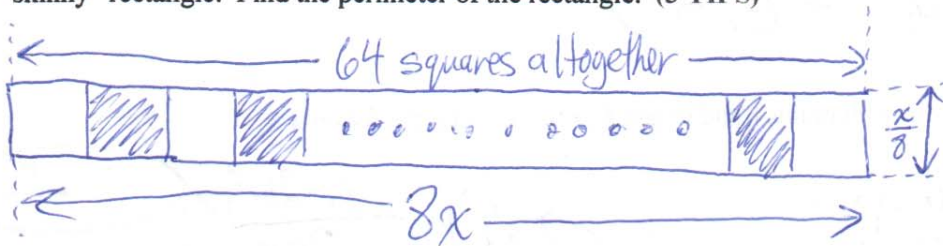 rectangle. Find the perimeter of the rectangle.
64 squares altogether
x/8
8x